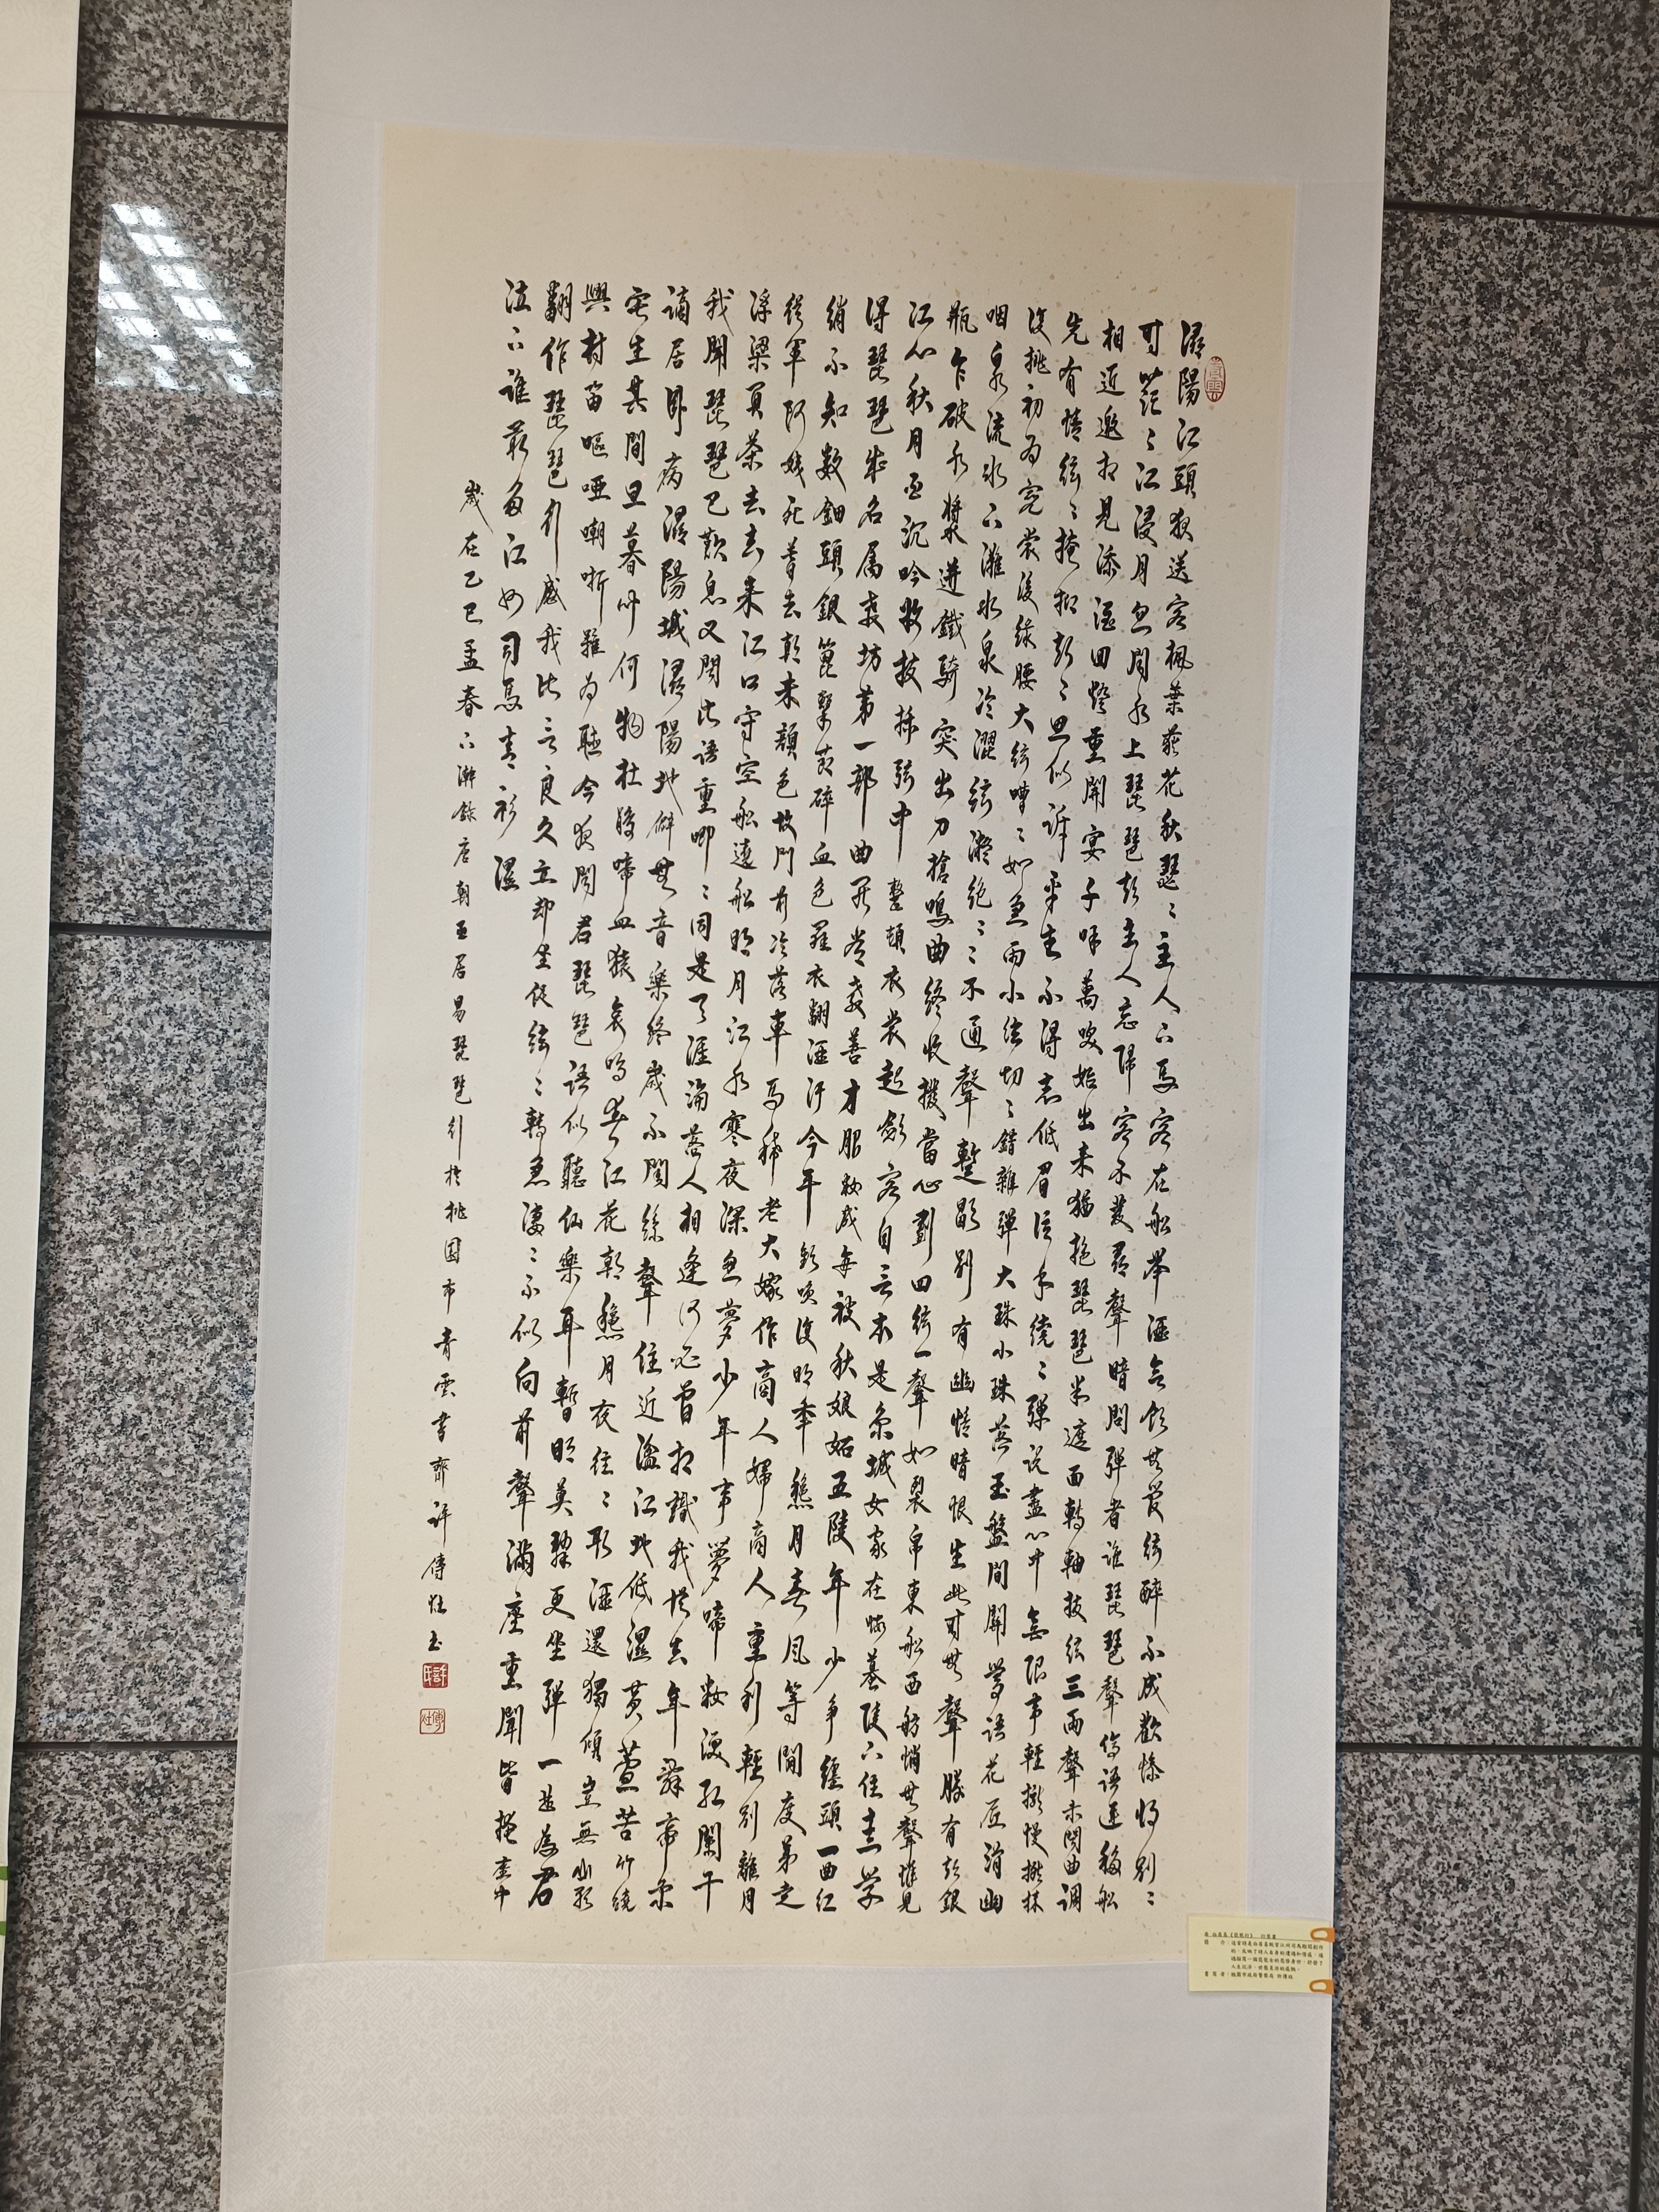 潯陽江頭夜送客楓葉荻花秋瑟〻主人下馬客在船舉酒欲飲無管絃醉不成歡慘將別〻
時茫〻江浸月忽聞水上琵琶聲主人忘歸客不發尋聲暗問彈者誰琵琶聲停語遲移船
相近邀相見添酒回燈重開宴千呼萬喚始出來猶抱琵琶半遮面轉軸撥絃三兩聲未成曲調
先有情絃〻掩抑聲〻思似訴平生不得志低眉信手續〻彈說盡心中無限事輕攏慢撚抹
復挑初為霓裳後綠腰大絃嘈〻如急雨小絃切〻錯雜彈大珠小珠落玉盤間關鶯語花底滑幽
咽泉流水下灘水泉冷澀絃凝絕〻〻不通聲暫歇別有幽情暗恨生此時無聲勝有聲銀
瓶乍破水漿迸鐵騎突出刀槍鳴曲終收撥當心劃四絃一聲如裂帛東船西舫悄無聲唯見
江心秋月白沉吟放撥插絃中整頓衣裳起斂容自言本是京城女家在蝦蟇陵下住十三學
得琵琶成名屬教坊第一部曲罷常教善才服妝成每被秋娘妬五陵年少爭纏頭一曲紅
綃不知數鈿頭銀篦擊節碎血色羅衣翻酒汙今年歡笑復明年秋月春風等閒度弟走
從軍阿姨死暮去朝來顏色故門前冷落車馬稀老大嫁作商人婦商人重利輕別離月
浮梁買茶去去來江口守空船遶船明月江水寒夜深忽夢少年事夢啼妝淚紅闌干
我聞琵琶已歎息又聞此語重唧〻同是天涯淪落人相逢何必曾相識我從去年辭帝京
謫居臥病潯陽城潯陽地僻無音樂終歲不聞絲聲住近湓江地低濕黃蘆苦竹繞
宅生其間旦暮聞何物杜鵑啼血猿哀鳴春江花朝秋月夜往〻取酒還獨傾豈無山歌
與村笛嘔啞嘲哳難為聽今夜聞君琵琶語似聽仙樂耳暫明莫辭更坐彈一曲為君
翻作琵琶引感我此言良久立却坐促絃〻轉急淒〻不似向前聲滿座重聞皆掩座中
泣下誰最多江州司馬青衫濕
歲在乙巳孟春下澣錄唐朝白居易琵琶引於桃園市青雲書齋許傳旺書